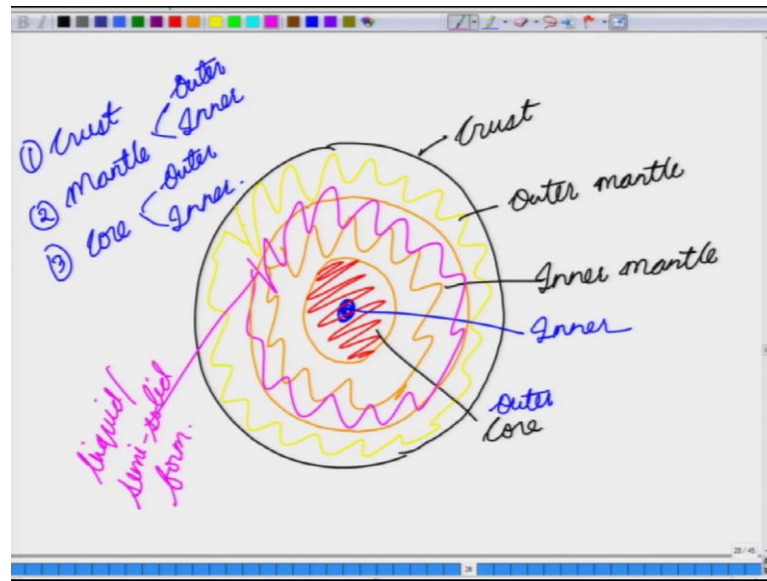 B I
① Crust
② Mantle < Outer
Inner
③ Core < Outer
Inner.
Crust
Outer mantle
Inner mantle
Inner
Outer
Core
liquid/
semi-solid
form.
28 / 45
28